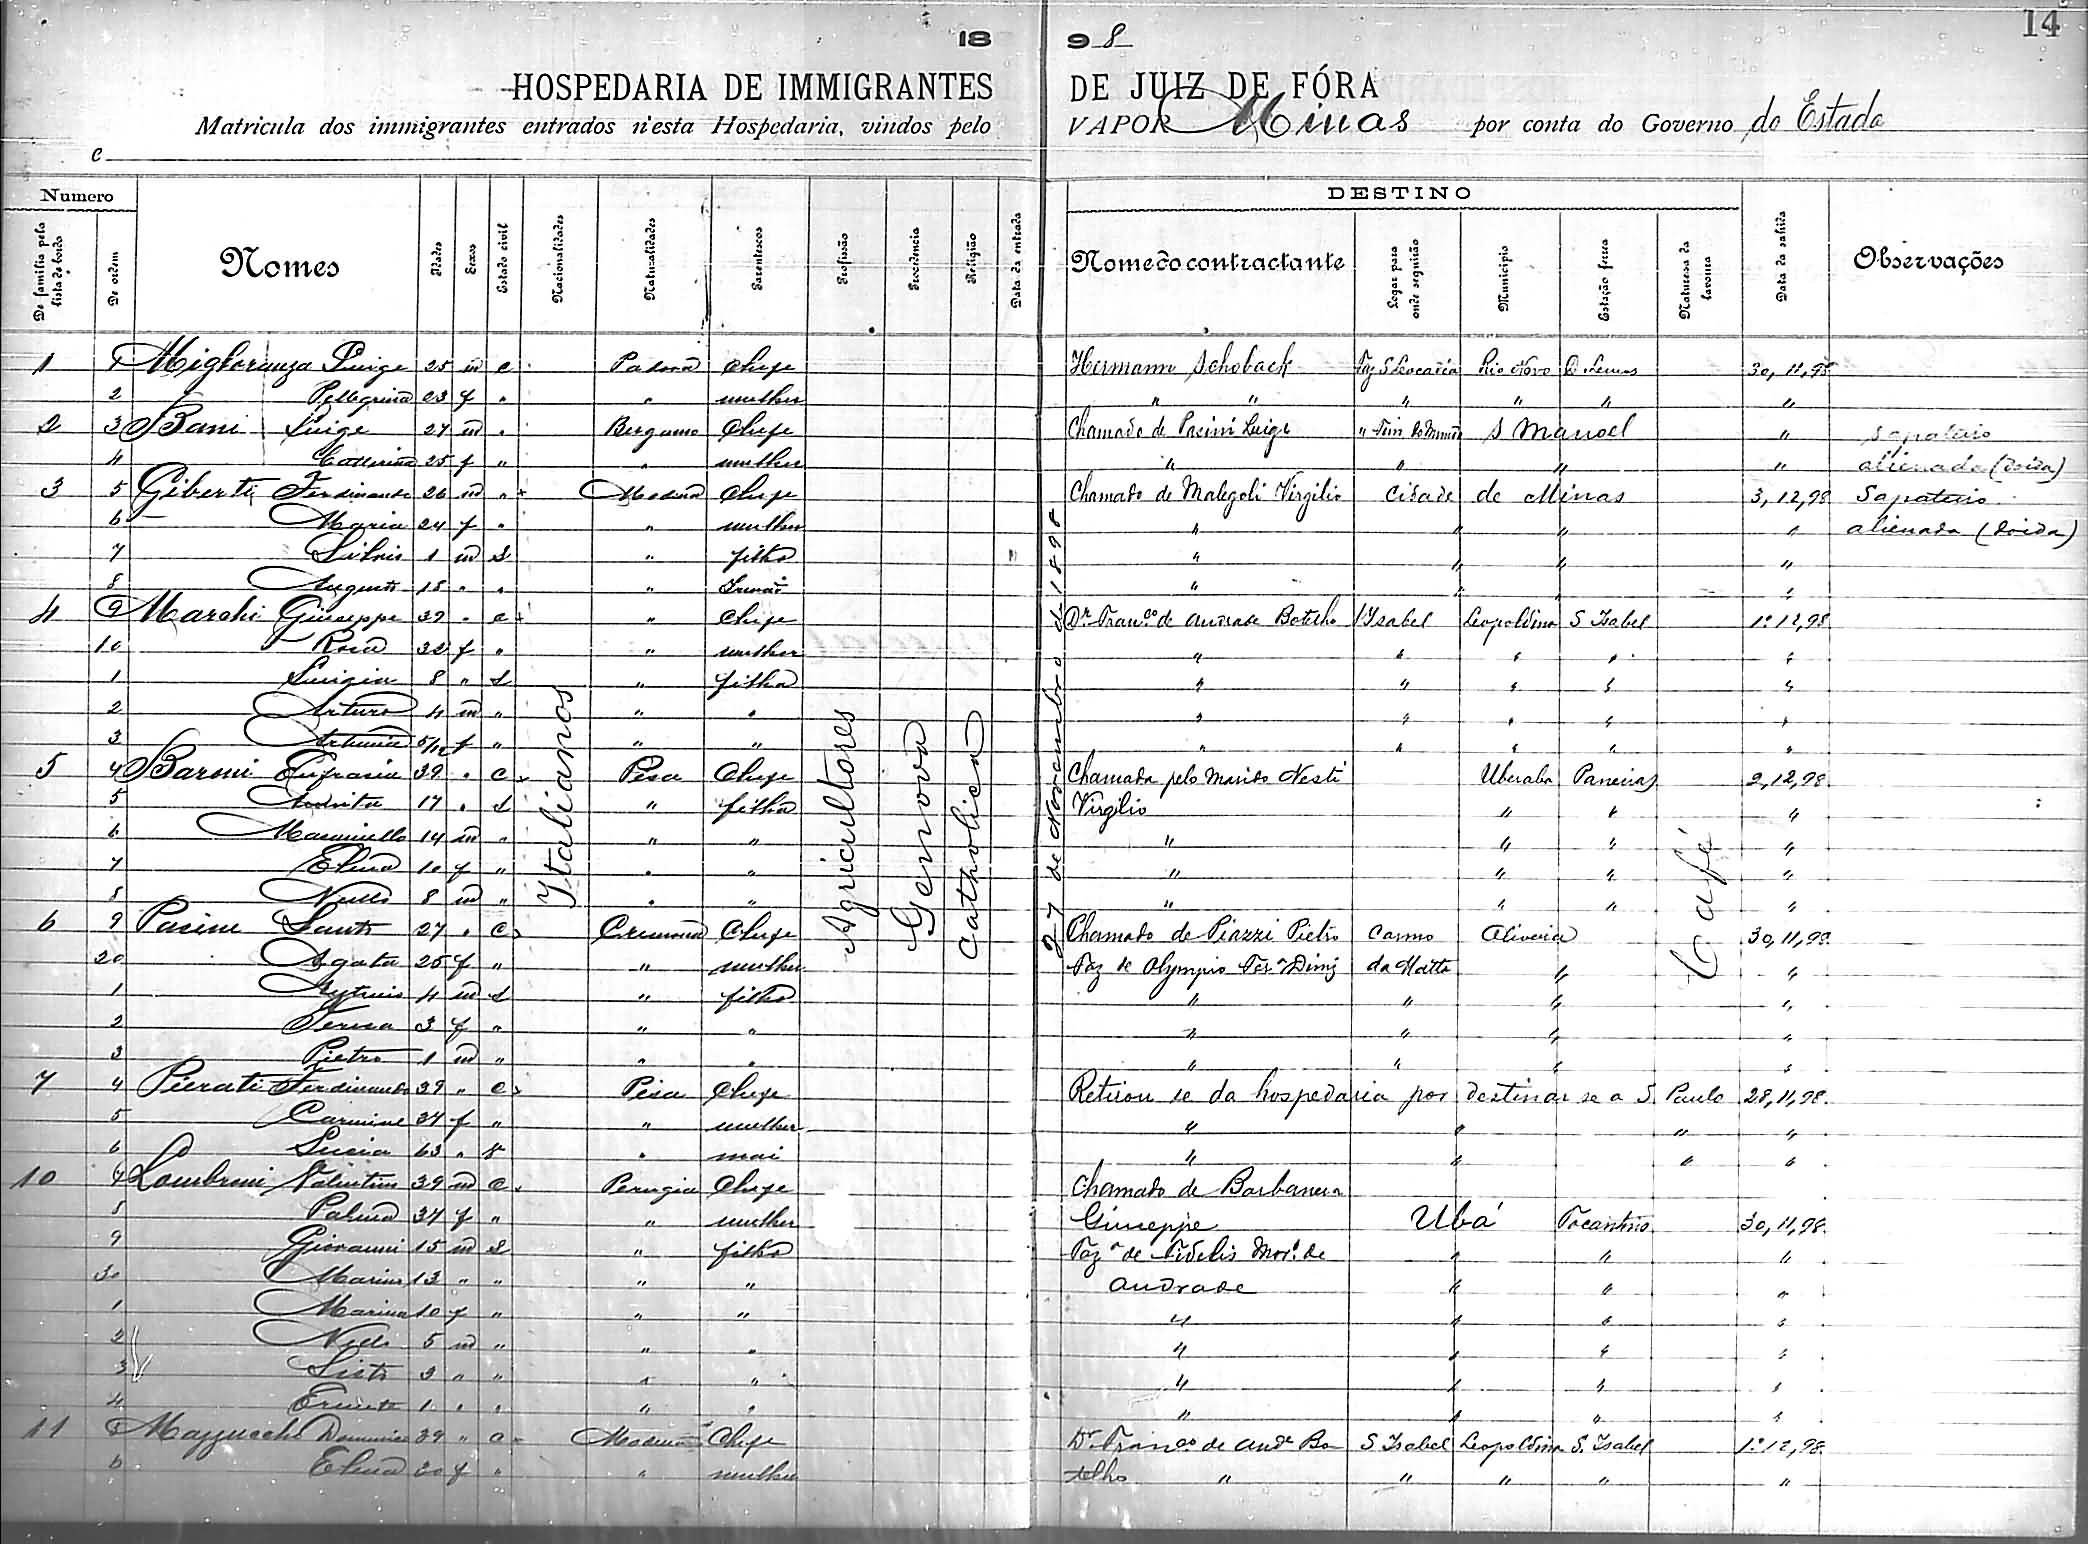 14
18 98
HOSPEDARIA DE IMMIGRANTES DE JUIZ DE FÓRA
Matricula dos immigrantes entrados n'esta Hospedaria, vindos pelo VAPOR Minas por conta do Governo do Estado
e
Numero DESTINO
De familia pela lista de bordo De ordem Nomes Idades Sexos Estado civil Nacionalidades Naturalidades Parentescos Profissão Procedencia Religião Data da entrada Nome do contractante Logar para onde seguirão Municipio Estação ferrea Naturesa da lavoura Data da sahida Observações
Italianos Agricultores Genova Catholica 27 de Novembro de 1898 Café
1 1 Migloranza Luige 25 m c Padova Chefe Hermann Schoback Faz S Leocadia Rio Novo 30, 11, 98
2 Pellegrina 23 f " " mulher " " " " " "
2 3 Bani Luige 27 m " Bergamo Chefe Chamado de Pasini Luige " S Manoel " Sapateiro
4 25 f " " mulher " " " " alienada (doida)
3 5 Giberti Ferdinando 26 m " Modena Chefe Chamado de Malegoli Virgilio Cidade de Minas 3, 12, 98 Sapateiro
6 Maria 24 f " " mulher " " " " alienada (doida)
7 1 m S " filho " " " "
8 Augusto 18 " " " Irmão " " " "
4 9 Marchi Giuseppe 39 " c " Chefe Dr. Franco. de Andrade Botelho S Isabel Leopoldina S Isabel 1º 12, 98
10 Rosa 32 f " " mulher " " " " "
1 Luigia 8 " S " filha " " " " "
2 Arturo 4 m " " " " " " " "
3 5/12 f " " " " " " " "
5 4 Baroni Eufrasia 39 " c Pisa Chefe Chamada pelo Marido Nesti Uberaba Paneiras 2, 12, 98
5 17 " S " filha Virgilio " " "
6 Masaniello 14 m " " " " " " "
7 Elena 10 f " " " " " " "
8 Nello 8 m " " " " " " "
6 9 Pasine Santo 27 " c Cremona Chefe Chamado de Piazzi Pietro Carmo Oliveira 30, 11, 98
20 Agata 25 f " " mulher Faz de Olympio Diniz da Matta " "
1 4 m S " filho " " " "
2 Teresa 3 f " " " " " " "
3 Pietro 1 m " " " " " " "
7 4 Pierati Ferdinando 39 " c Pisa Chefe Retirou se da hospedaria por destinar se a S. Paulo 28, 11, 98
5 Carmine 34 f " " mulher " " " "
6 Lucia 63 " " mai " " " "
10 7 Lambroni Valentino 39 m c Perugia Chefe Chamado de Barbanera
8 Palma 34 f " " mulher Giuseppe Ubá Tocantins 30, 11, 98
9 Giovanni 15 m S " filho Faza. de Fidelis Mora. de " " "
30 Marino 13 " " " " Andrade " " "
1 Marina 10 f " " " " " " "
2 Nello 5 m " " " " " " "
3 Sisto 3 " " " " " " " "
4 Ernesto 1 " " " " " " " "
11 5 Mazzucchi Domenico 39 " c Modena Chefe Dr. Franco deAnde Bo S Isabel Leopoldina S. Isabel 1º 12, 98
6 Elena 30 f " " mulher telho " " " " "